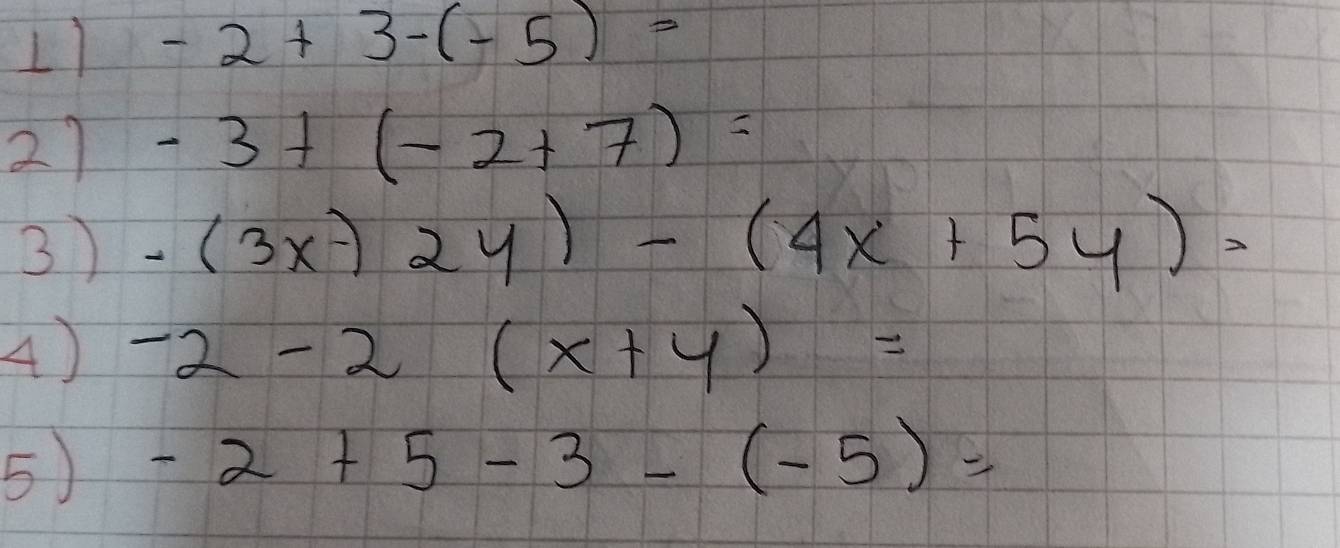 1) -2 + 3-(-5) =
2) -3 + (-2 + 7) =
3) -(3x-) 2y) - (4x + 5y) =
4) -2 - 2 (x + y) =
5) -2 + 5 - 3 - (-5) =